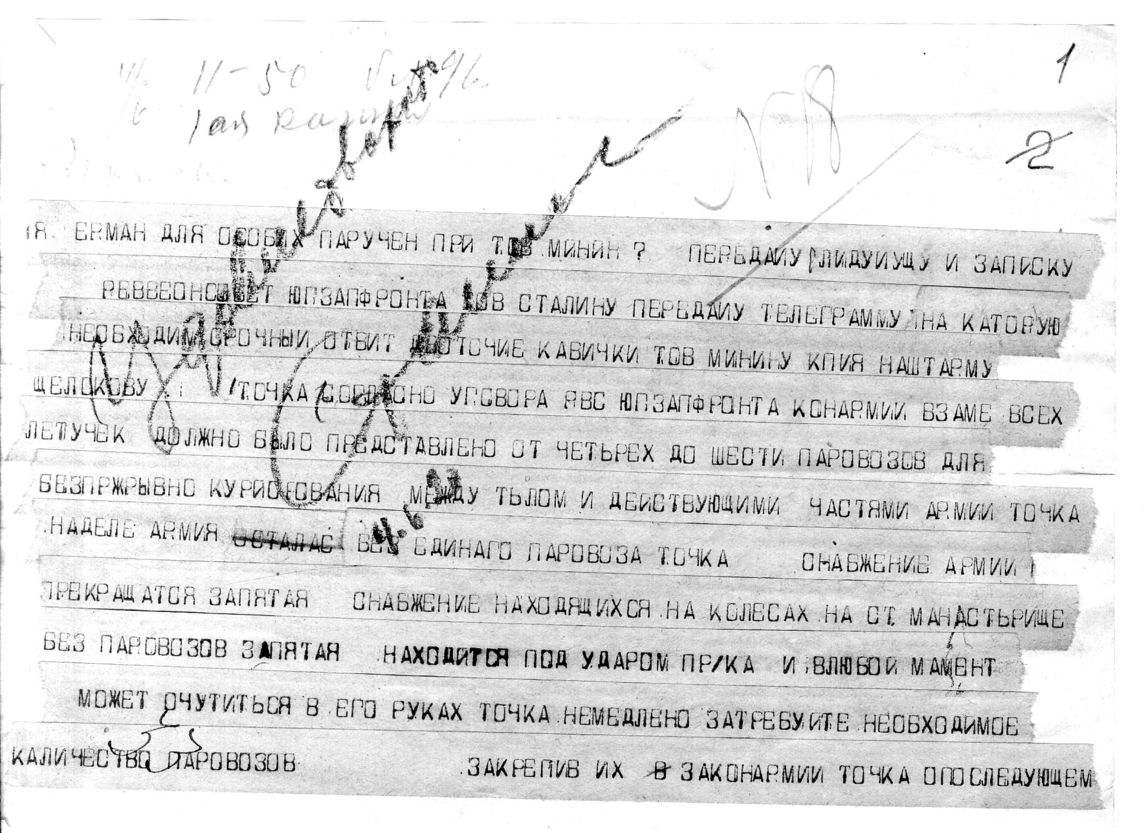 11-50
1
N 18
2
ЕРМАН ДЛЯ ОСОБЫХ ПАРУЧЕН ПРИ ТОВ МИНИН ? ПЕРЕДАЙУ СЛИДУИУЩУ И ЗАПИСКУ
РЕВВЕОНСОВЕТ ЮПЗАПФРОНТА ТОВ СТАЛИНУ ПЕРЕДАЙУ ТЕЛЕГРАММУ НА КАТОРУЮ
НЕОБХОДИМ СРОЧНЫЙ ОТВИТ ДВОТОЧИЕ КАВИЧКИ ТОВ МИНИНУ КПИЯ НАШТАРМУ
ЩЕЛОКОВУ ТОЧКА СОГЛАСНО УГСВОРА ЯВС ЮПЗАПФРОНТА КОНАРМИИ ВЗАМЕ ВСЕХ
ЛЕТУЧЕК ДОЛЖНО БЫЛО ПРЕДСТАВЛЕНО ОТ ЧЕТЬРЕХ ДО ШЕСТИ ПАРОВОЗОВ ДЛЯ
БЕЗПРЖРЫВНО КУРЙОТОВАНИЯ МЕЖДУ ТЬЛОМ И ДЕЙСТВУЮЩИМИ ЧАСТЯМИ АРМИИ ТОЧКА
НАДЕЛЕ АРМИЯ ОСТАЛАС БЕЗ ЕДИНАГО ПАРОВОЗА ТОЧКА СНАБЖЕНИЕ АРМИИ
ПРЕКРАЩАТСЯ ЗАПЯТАЯ СНАБЖЕНИЕ НАХОДЯЩИХСЯ НА КОЛЕСАХ НА СТ. МАНАСТЬРИЩЕ
БЕЗ ПАРОВОЗОВ ЗАПЯТАЯ НАХОДИТСЯ ПОД УДАРОМ ПР/КА И ВЛЮБОЙ МАМЕНТ
МОЖЕТ ОЧУТИТЬСЯ В ЕГО РУКАХ ТОЧКА НЕМЕДЛЕНО ЗАТРЕБУЙТЕ НЕОБХОДИМОЕ
КАЛИЧЕСТВО ПАРОВОЗОВ ЗАКРЕПИВ ИХ В ЗАКОНАРМИИ ТОЧКА ОПОСЛЕДУЮЩЕМ